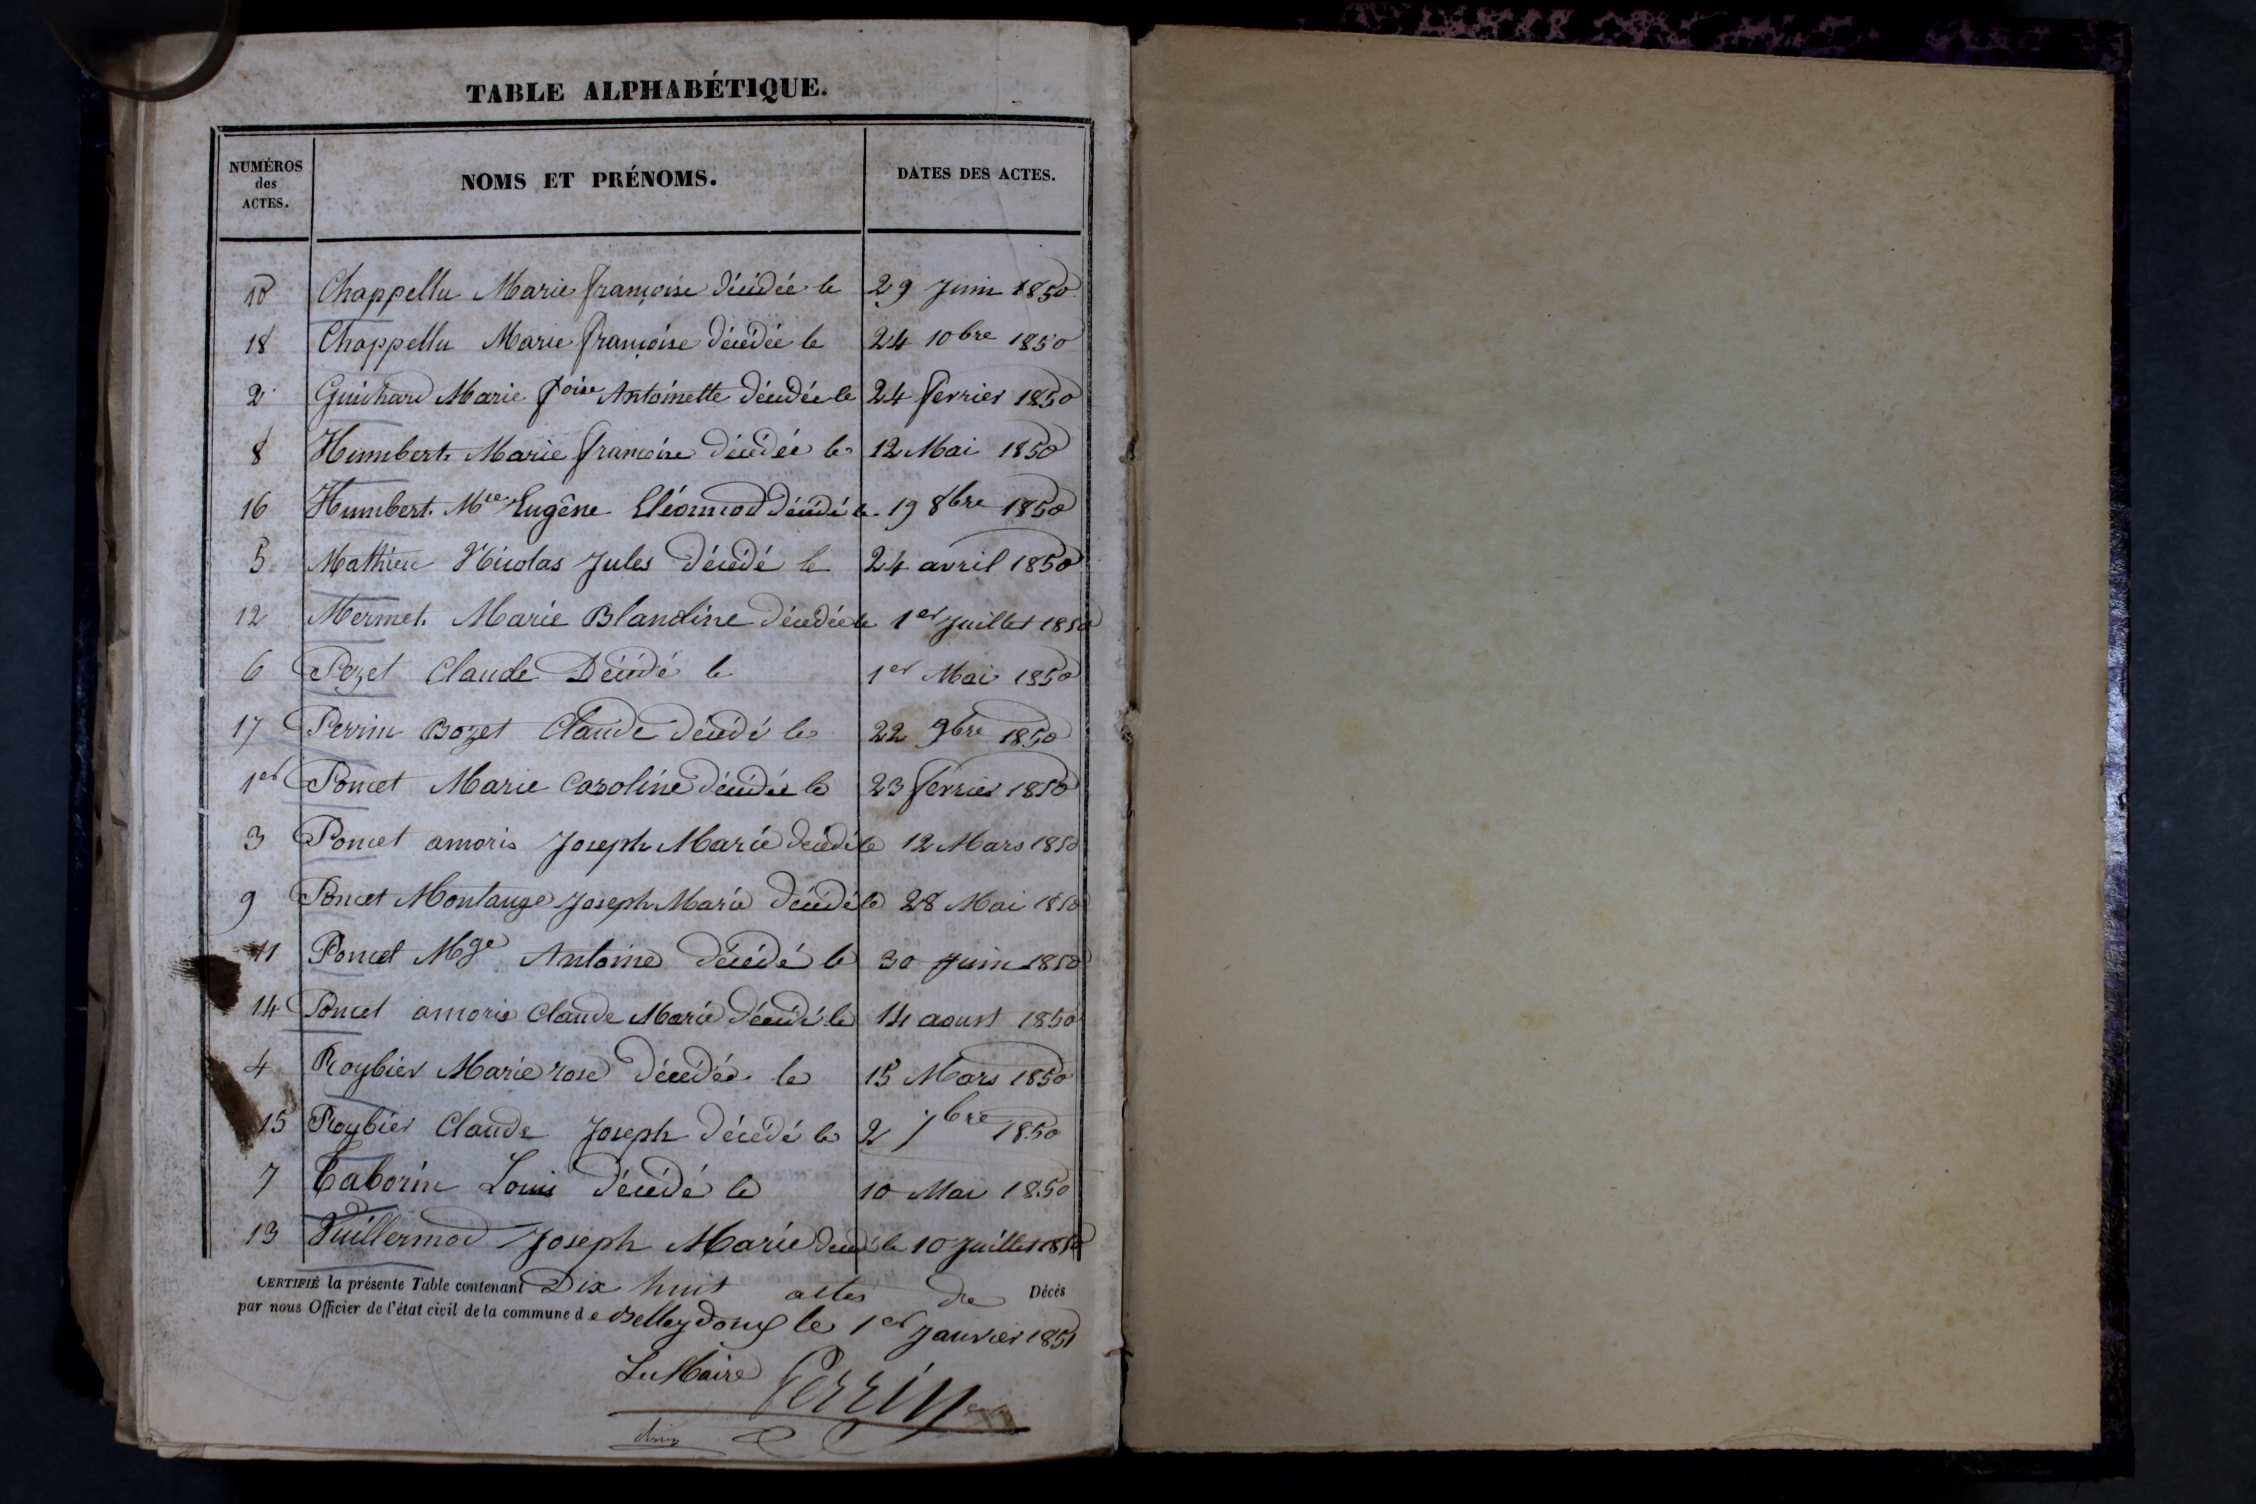 TABLE ALPHABÉTIQUE.
NUMÉROS des ACTES.
NOMS ET PRÉNOMS.
DATES DES ACTES.
10 Chappellu Marie françoise décédée le 29 Juin 1850
18 Chappellu Marie françoise décédée le 24 10bre 1850
2 Guichard Marie foise Antoinette décédée le 24 fevrier 1850
8 Humbert Marie francoise décédée le 12 Mai 1850
16 Humbert Mie Eugène Cléomod décédé le 19 8bre 1850
5 Mathieu Nicolas Jules décédé le 24 avril 1850
12 Mermet Marie Blandine décédée le 1er Juillet 1850
6 Pezet Claude Décédé le 1er Mai 1850
17 Perrin Bozet Claude décédé le 22 9bre 1850
1er Poncet Marie Caroline décédée le 23 fevrier 1850
3 Poncet amoris Joseph Marie décédé le 12 Mars 1850
9 Poncet Montange Joseph Marie décédé le 28 Mai 1850
11 Poncet Mge Antoine décédé le 30 Juin 1850
14 Poncet amoris Claude Marie décédé le 14 aoust 1850
4 Roybier Marie rose décédée le 15 Mars 1850
15 Roybier Claude Joseph décédé le 2 7bre 1850
7 Taborin Louis décédé le 10 Mai 1850
13 Vuillermod Joseph Marie décédé le 10 Juillet 1850
CERTIFIÉ la présente Table contenant Dix huit actes de Décès
par nous Officier de l'état civil de la commune de Belleydoux le 1er Janvier 1851
Le Maire Perrin